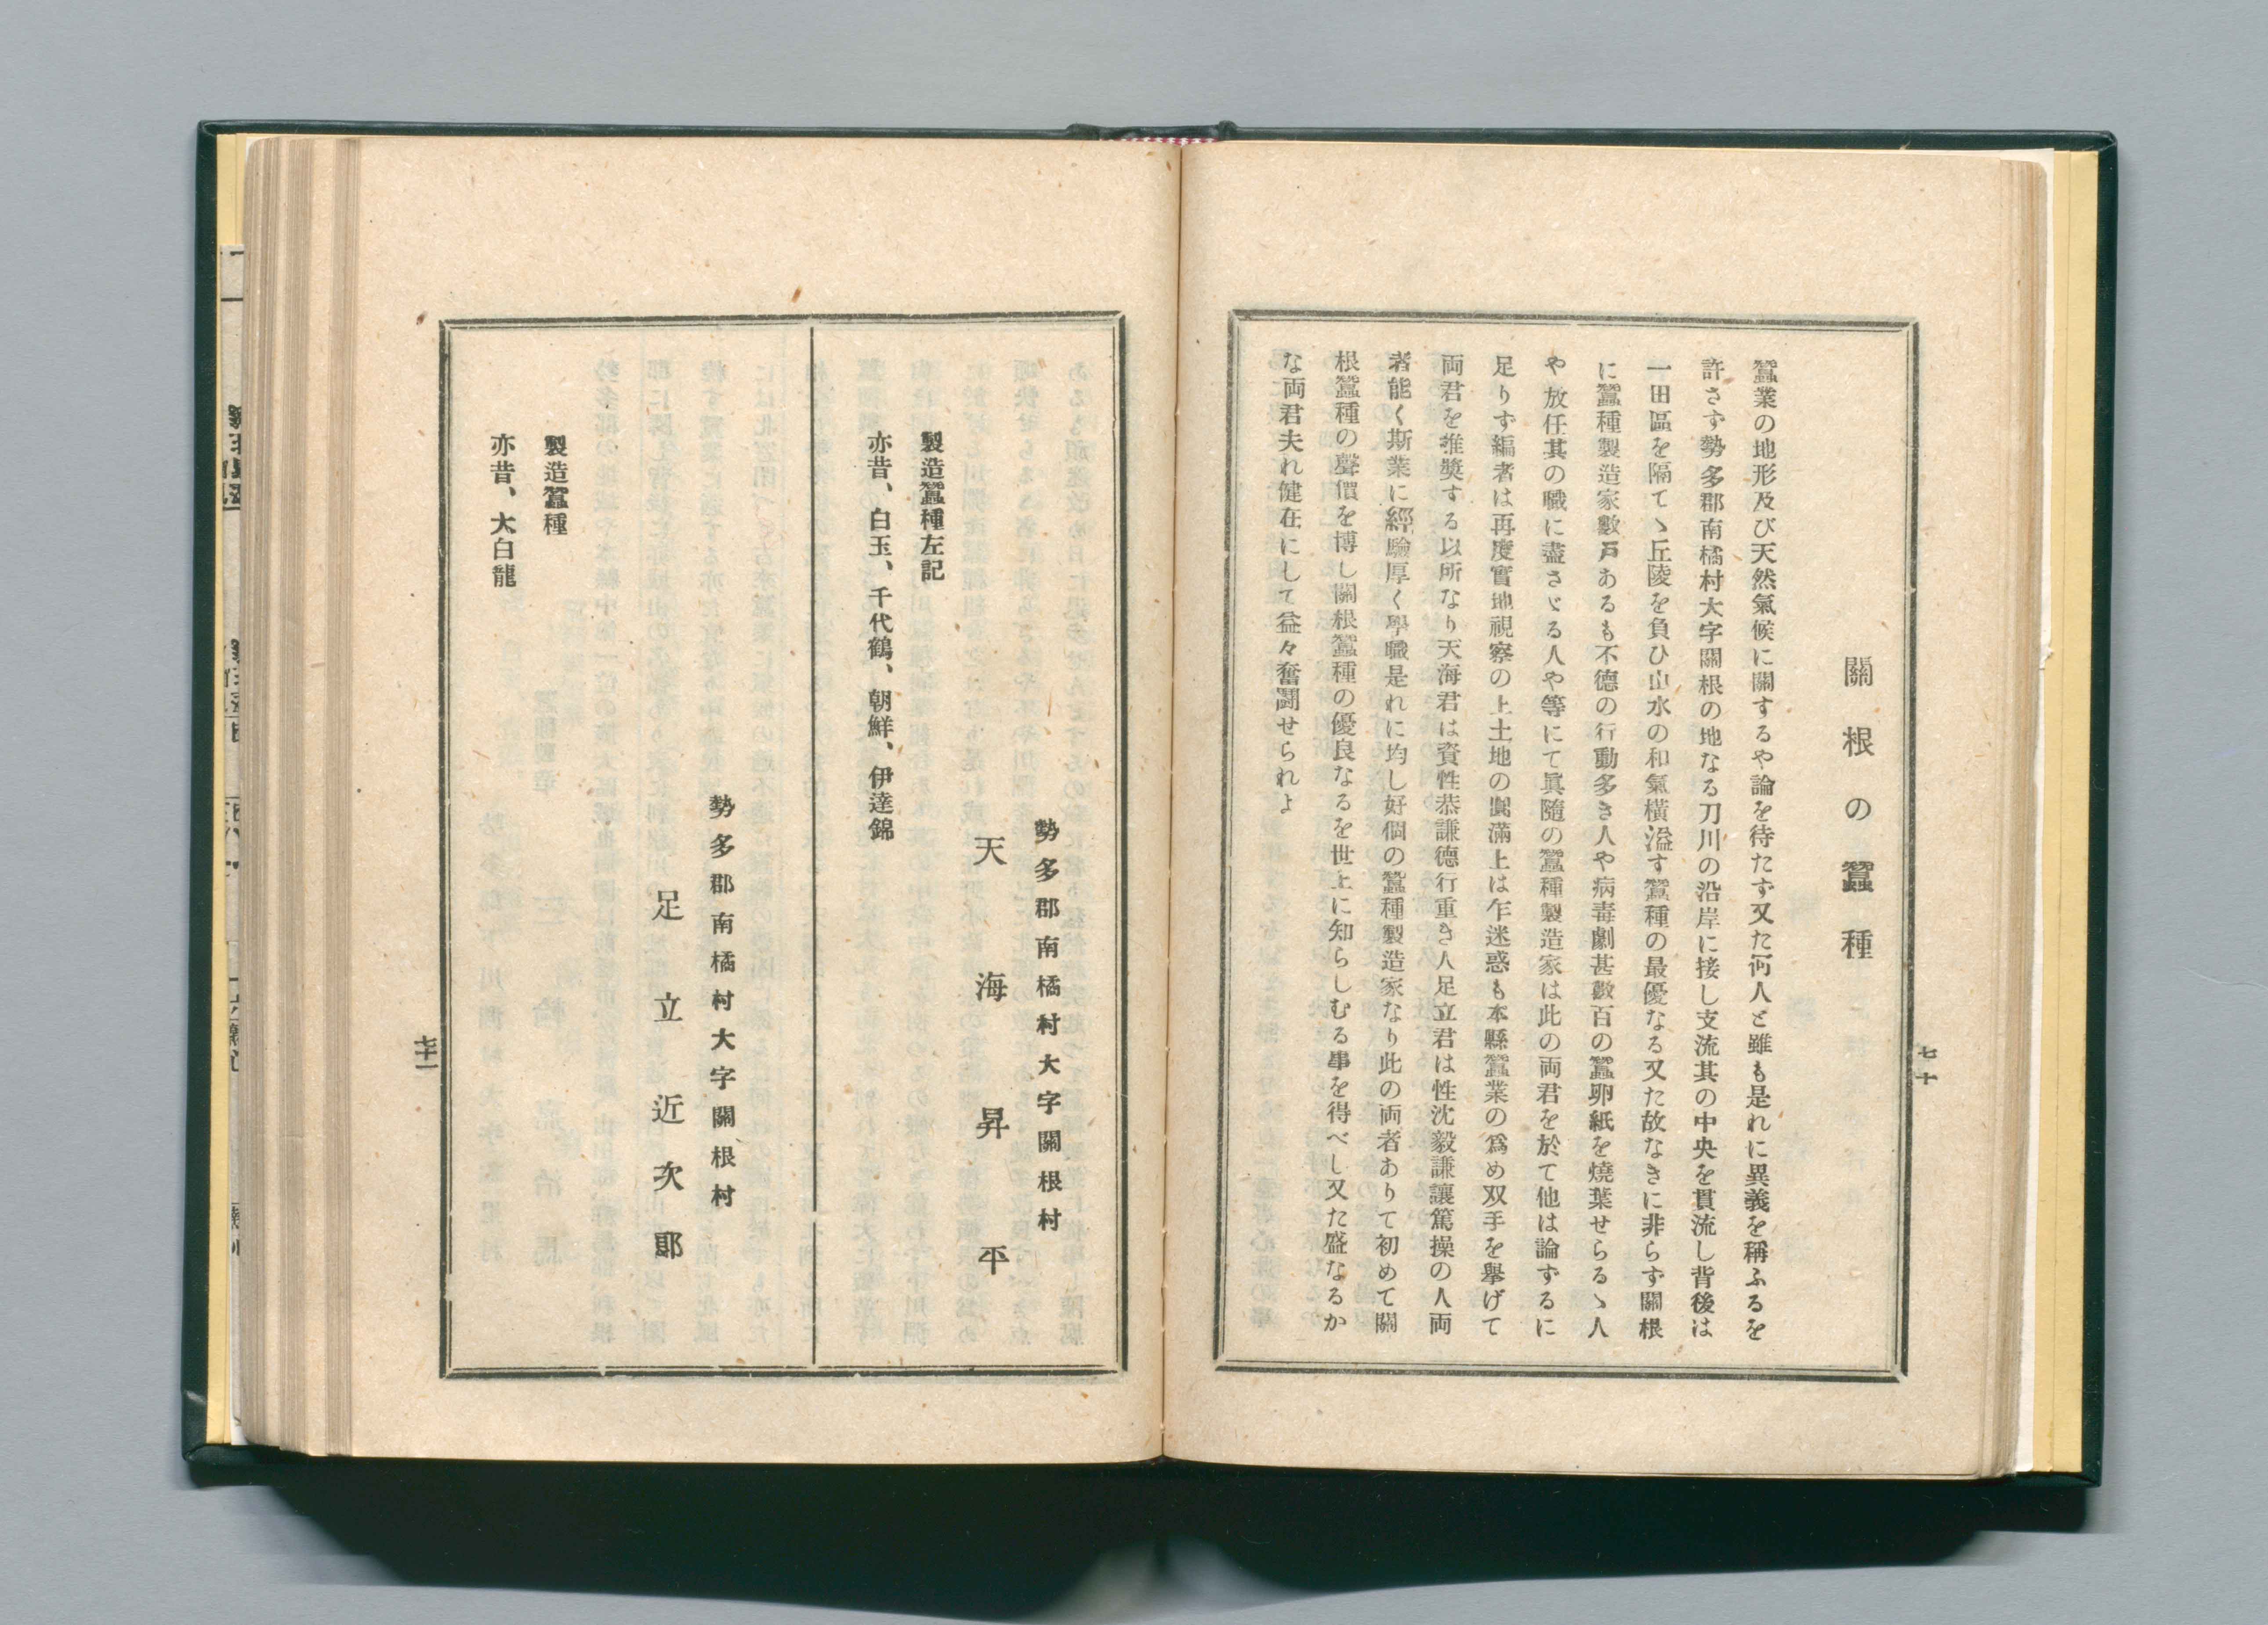 關根の蠶種
蠶業の地形及び天然氣候に關するや論を待たず又た何人と雖も是れに異義を稱ふるを
許さず勢多郡南橘村大字關根の地なる刀川の沿岸に接し支流其の中央を貫流し背後は
一田區を隔てヽ丘陵を負ひ山水の和氣橫溢す蠶種の最優なる又た故なきに非らず關根
に蠶種製造家數戸あるも不德の行動多き人や病毒劇甚數百の蠶卵紙を燒葉せらるヽ人
や放任其の職に盡さヾる人や等にて眞隨の蠶種製造家は此の両君を於て他は論ずるに
足りず編者は再度實地視察の上土地の圓滿上は乍迷惑も本縣蠶業の爲め双手を擧げて
両君を推奬する以所なり天海君は資性恭謙德行重き人足立君は性沈毅謙讓篤操の人両
者能く斯業に經驗厚く學職是れに均し好個の蠶種製造家なり此の両者ありて初めて關
根蠶種の聲價を博し關根蠶種の優良なるを世上に知らしむる事を得べし又た盛なるか
な両君夫れ健在にして益々奮鬪せられよ
七十
勢多郡南橘村大字關根村
天海昇平
製造蠶種左記
亦昔、白玉、千代鶴、朝鮮、伊達錦
勢多郡南橘村大字關根村
足立近次郎
製造蠶種
亦昔、大白龍
七十一